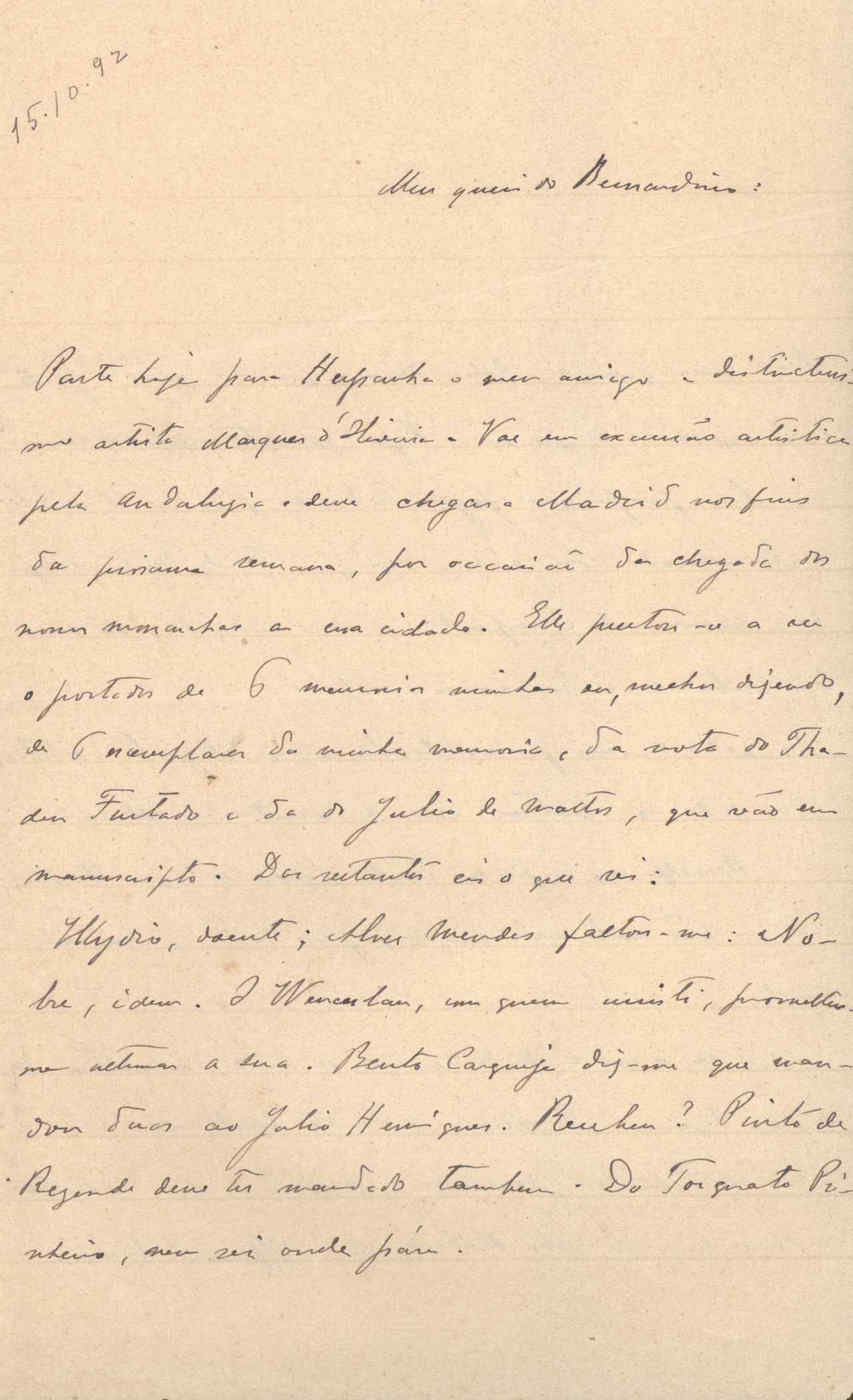 15.10.92
Meu querido Bernardino:
Parte hoje para Hespanha o meu amigo e distinctissi-
mo artista Marques d'Oliveira. Vae em excursão artistica
pela Andaluzia e deve chegar a Madrid nos fins
da proxima semana, por occasião da chegada dos
nossos monarchas a essa cidade. Elle prestou-se a ser
o portador de 6 memorias minhas ou, melhor dizendo,
de 6 exemplares da minha memoria, da nota do Tha-
deu Furtado e da do Julio de Mattos, que vão em
manuscripto. Dos restantes eis o que sei:
Illydio, doente; Alves Mendes faltou-me: No-
bre, idem. O Wenceslau, com quem insisti, prometteu-
me ultimar a sua. Bento Carqueja diz-me que man-
dou duas ao Julio Henriques. Recebeu? Pinto de
Rezende deve ter mandado tambem. Do Torquato Pi-
nheiro, nem sei onde pára.